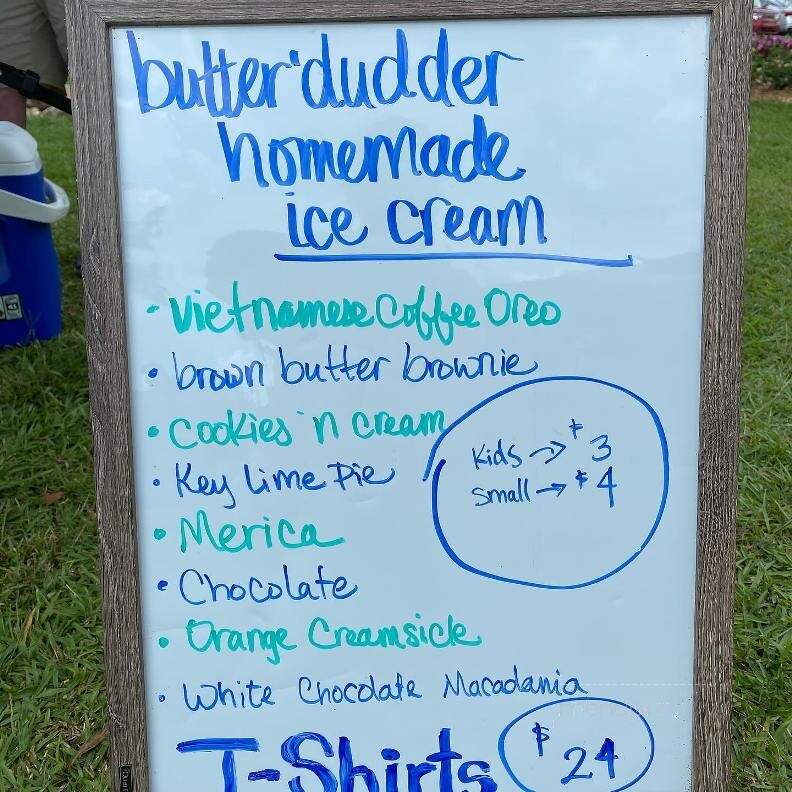 butter dudder
homemade
ice cream
• Vietnamese Coffee Oreo
• brown butter brownie
• Cookies 'n cream
Kids → $3
• Key Lime Pie
Small → $4
• Merica
• Chocolate
• Orange Creamsicle
• White Chocolate Macadamia
T-Shirts $24